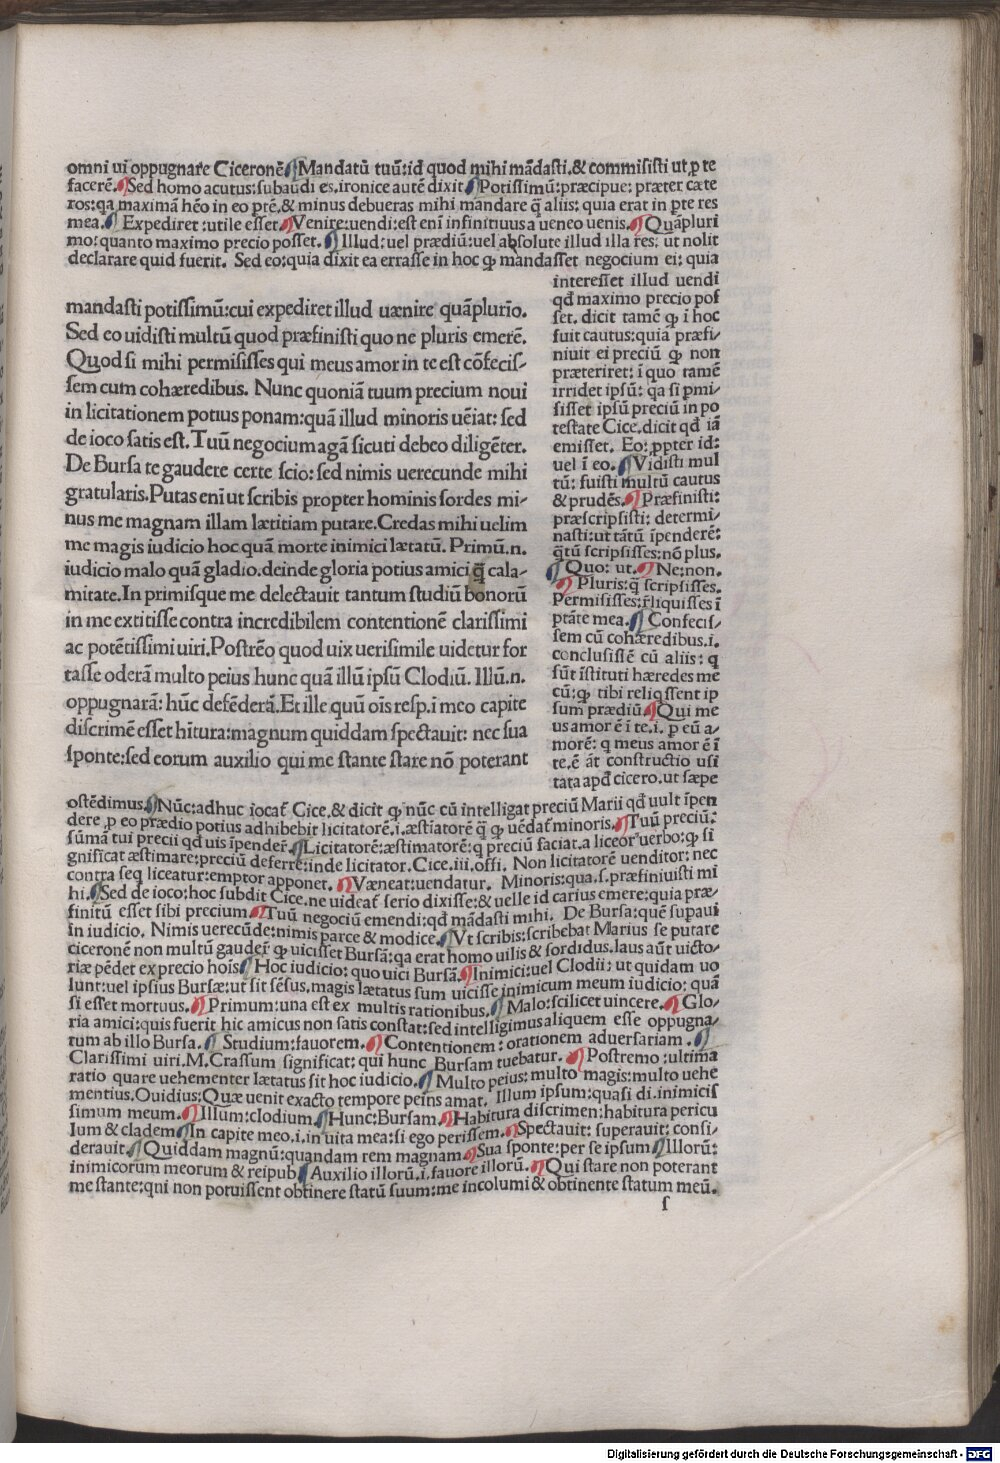 omni ui oppugnare Ciceronē¶Mandatū tuū:id quod mihi mādasti.& commisisti ut ꝑ te
facerē.¶Sed homo acutus:subaudi es,ironice autē dixit.¶Potissimū:præcipue: præter cæte
ros:qa maximā hēo in eo ptē.& minus debueras mihi mandare q̄ aliis: quia erat in pte res
mea.¶ Expediret :utile esset.¶Venire:uendi:est eni infinitiuus a ueneo uenis.¶ Quāpluri
mo:quanto maximo precio posset.¶ Illud:uel prædiū:uel absolute illud illa res: ut nolit
declarare quid fuerit. Sed eo:quia dixit ea errasse in hoc ꝙ mandasset negocium ei: quia
mandasti potissimū:cui expediret illud uænire quāplurīo.
Sed eo uidisti multū quod præfinisti quo ne pluris emerē.
Quod si mihi permisisses qui meus amor in te est cōfecis-
sem cum cohæredibus. Nunc quoniā tuum precium noui
in licitationem potius ponam:quā illud minoris uēiat: sed
de ioco satis est. Tuū negocium agā sicuti debeo diligēter.
De Bursa te gaudere certe scio: sed nimis uerecunde mihi
gratularis.Putas eni ut scribis propter hominis sordes mi-
nus me magnam illam lætitiam putare.Credas mihi uelim
me magis iudicio hoc quā morte inimici lætatū. Primū.n.
iudicio malo quā gladio.deinde gloria potius amici q̄ cala-
mitate.In primisque me delectauit tantum studiū bonorū
in me extitisse contra incredibilem contentionē clarissimi
ac potētissimi uiri.Postrēo quod uix uerisimile uidetur for
tasse oderā multo peius hunc quā illū ipsū Clodiū. Illū.n.
oppugnarā: hūc defēderā.Et ille quū oīs resp.ī meo capite
discrimē esset hītura:magnum quiddam spectauit: nec sua
sponte:sed eorum auxilio qui me stante stare nō poterant
interesset illud uendi
qđ maximo precio pos
set. dicit tamē ꝙ ī hoc
fuit cautus:quia præfi-
niuit ei preciū ꝙ non
præteriret: ī quo tamē
irridet ipsū: qa si ꝑmi-
sisset ipsū preciū in po
testate Cice.dicit qđ iā
emisset. Eo: ꝓpter id:
uel ī eo.¶ Vidisti mul
tū: fuisti multū cautus
& prudēs.¶ Præfinisti:
præscripsisti: determi-
nasti:ut tātū īpenderē:
q̄tū scripsisses:nō plus.
¶ Quo: ut.¶ Ne:non.
¶ Pluris:q̄ scripsisses.
Permisisses:r̄liquisses ī
ptāte mea.¶ Confecis-
sem cū cohæredibus.i.
conclusissē cū aliis: q
sūt īstituti hæredes me
cū:ꝙ tibi reliq̄ssent ip
sum prædiū.¶Qui me
us amor ē ī te.i. ꝑ eū a-
morē: q meus amor ē ī
te.ē āt constructio usi
tata apđ cicero.ut sæpe
ostēdimus.¶Nūc:adhuc iocat̄ Cice.& dicit ꝙ nūc cū intelligat preciū Marii qđ uult īpen
dere ꝑ eo prædio potius adhibebit licitatorē.i.æstiatorē q̄ ꝙ uēdat̄ minoris.¶Tuū preciū:
sūmā tui precii qđ uis īpender̄.¶Licitatorē:æstimatorē:q preciū faciat.a liceor uerbo:ꝙ si
gnificat æstimare:preciū deferre:inde licitator.Cice.iii.offi. Non licitatorē uenditor: nec
contra seq liceatur:emptor apponet.¶Væneat:uendatur. Minoris:qua.s.præfiniuisti mi
hi.¶Sed de ioco:hoc subdit Cice.ne uideat̄ serio dixisse:& uelle id carius emere:quia præ-
finitū esset sibi precium.¶Tuū negociū emendi:qđ mādasti mihi. De Bursa:quē supaui
in iudicio. Nimis uerecūde:nimis parce & modice.¶Vt scribis:scribebat Marius se putare
ciceronē non multū gauder̄ ꝙ uicisset Bursā:qa erat homo uilis & sordidus.laus aūt uicto-
riæ pēdet ex precio hoīs.¶Hoc iudicio: quo uici Bursā.¶Inimici:uel Clodii: ut quidam uo
lunt:uel ipsius Bursæ:ut sit sēsus,magis lætatus sum uicisse inimicum meum iudicio: quā
si esset mortuus.¶Primum:una est ex multis rationibus.¶Malo:scilicet uincere.¶Glo-
ria amici:quis fuerit hic amicus non satis constat:sed intelligimus aliquem esse oppugna-
tum ab illo Bursa.¶ Studium:fauorem.¶Contentionem: orationem aduersariam.¶
Clarissimi uiri.M.Crassum significat: qui hunc Bursam tuebatur.¶Postremo :ultima
ratio quare uehementer lætatus sit hoc iudicio.¶Multo peius: multo magis:multo uehe
mentius.Ouidius:Quæ uenit exacto tempore peins amat. Illum ipsum:quasi di.inimicis
simum meum.¶Illum:clodium.¶Hunc:Bursam.¶Habitura discrimen:habitura pericu
lum & cladem.¶In capite meo.i.in uita mea:si ego perissem.¶Spectauit: superauit: consi-
derauit.¶Quiddam magnū:quandam rem magnam.¶Sua sponte:per se ipsum.¶Illorū:
inimicorum meorum & reipub.¶Auxilio illorū.i.fauore illorū.¶Qui stare non poterant
me stante:qni non potuissent obtinere statū suum:me incolumi & obtinente statum meū.
s
Digitalisierung gefördert durch die Deutsche Forschungsgemeinschaft - DFG